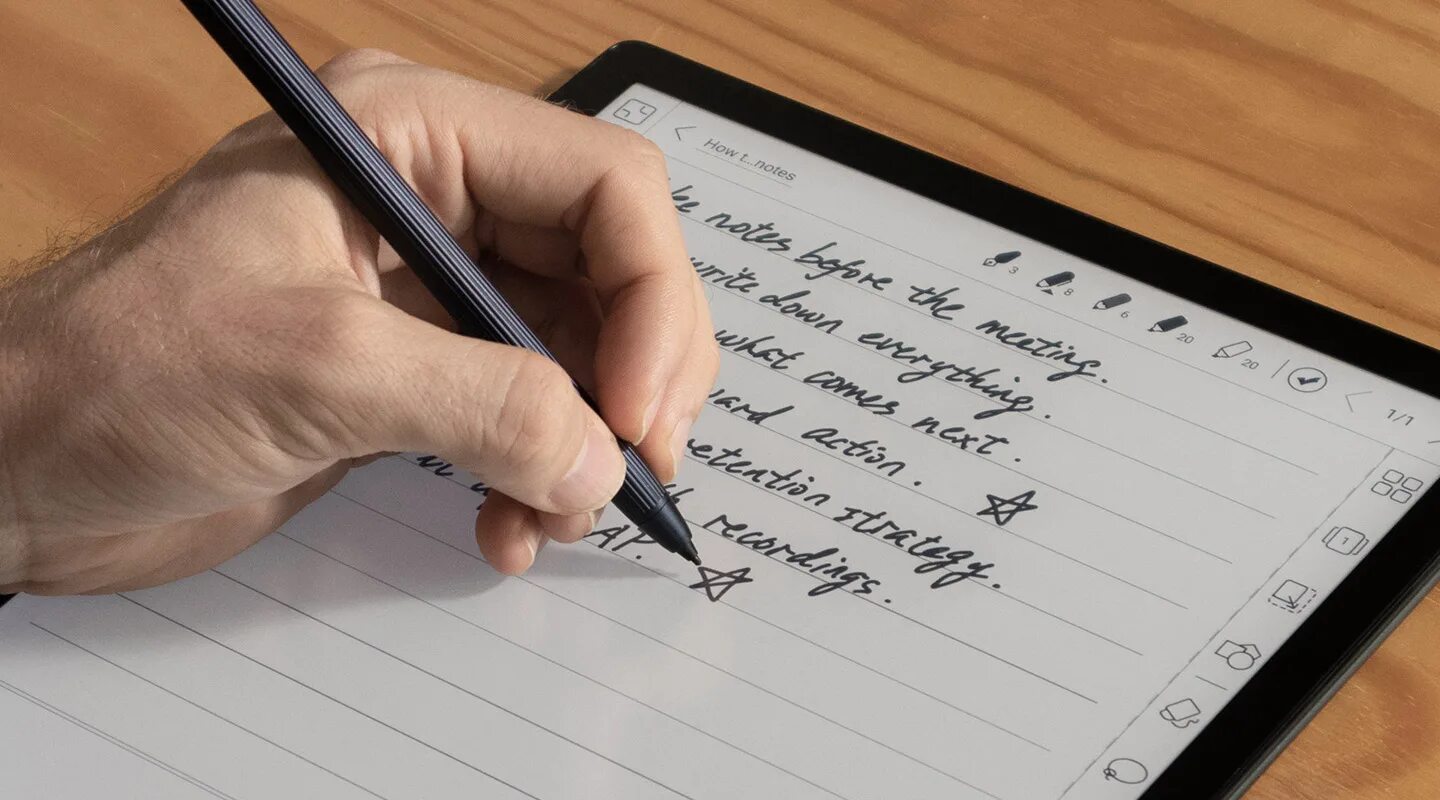 How t...notes
3 8 6 20 20
1/1
notes before the meeting.
write down everything.
what comes next.
action.
retention strategy.
recordings.
AP.
1